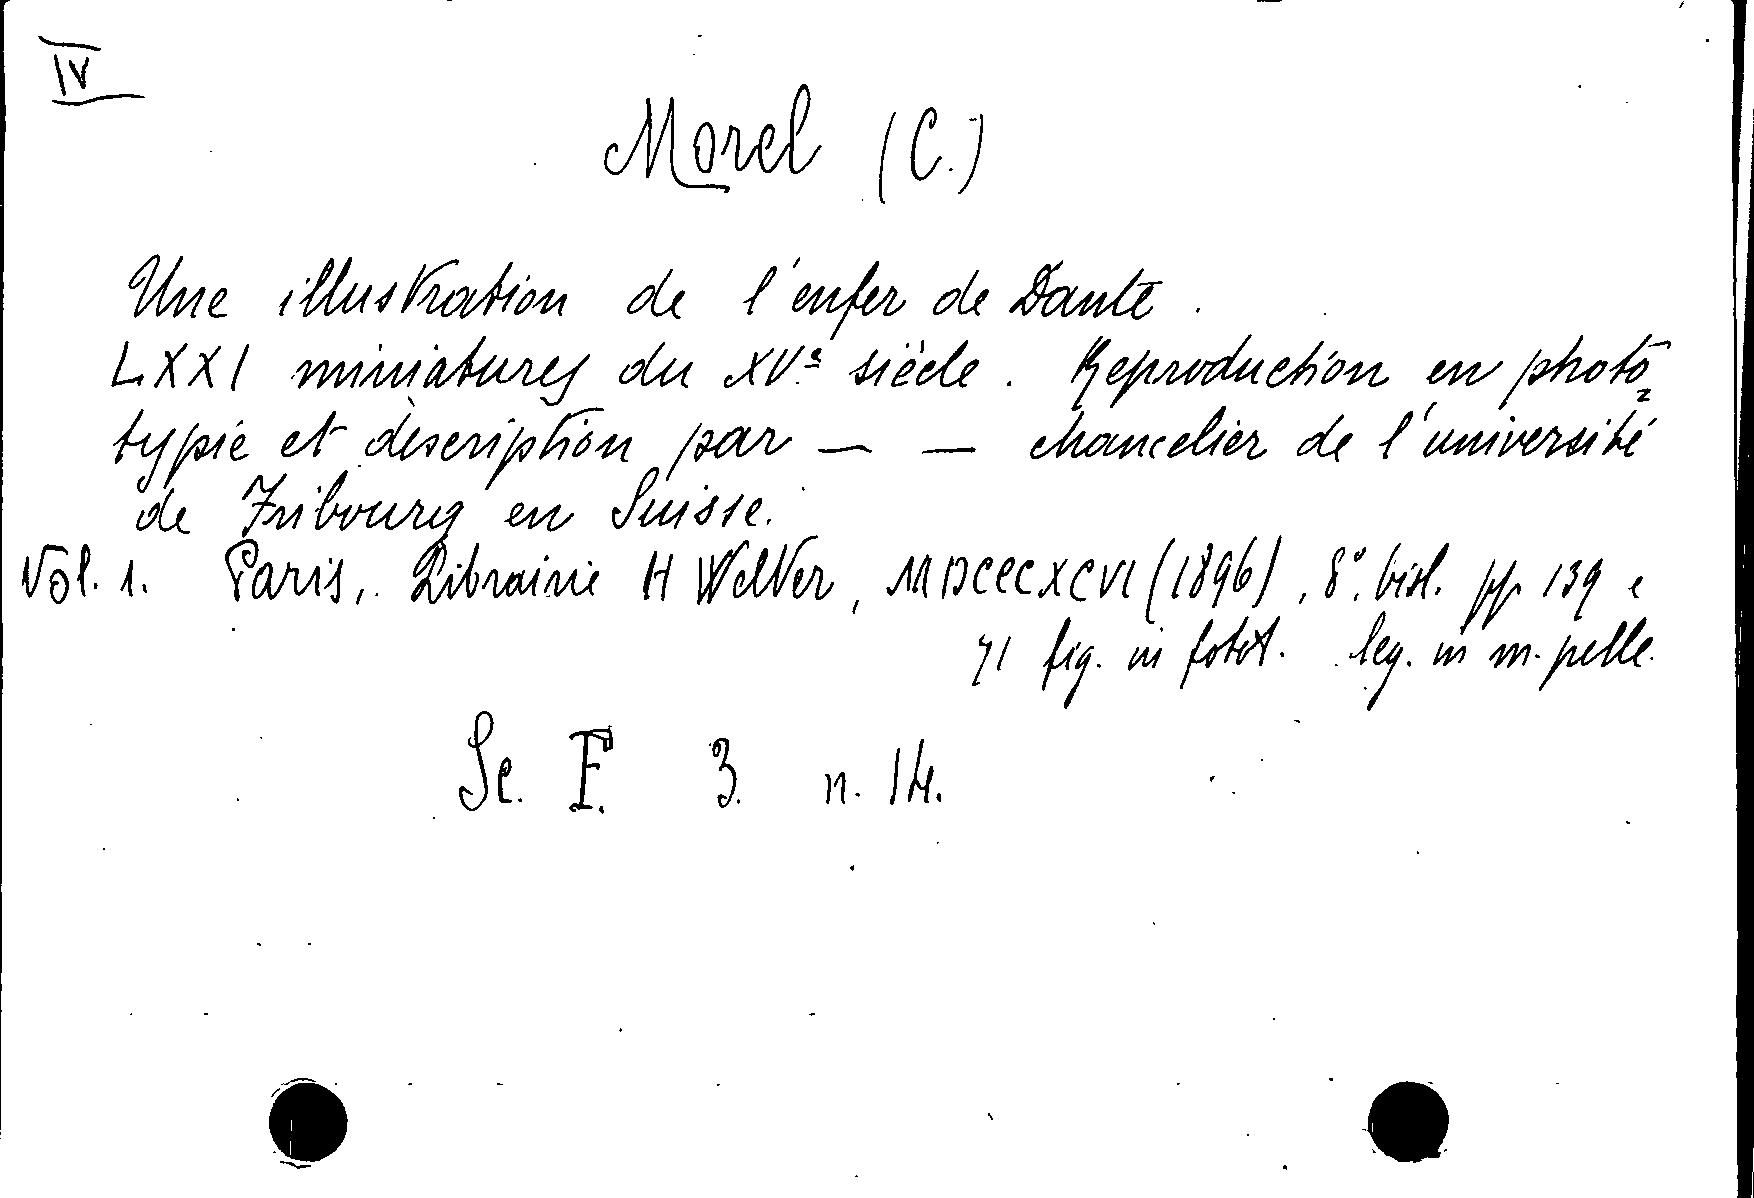 IV
Morel (C.)
Une illustration de l'enfer de Dante.
LXXI miniatures du XVe siècle. Reproduction en photo=
typie et description par — — chancelier de l'université
de Fribourg en Suisse.
Vol. 1. Paris, Librairie H Welter, MDCCCXCVI (1896), 8°. bisl. pp. 139 e
71 fig. in fotot. leg. in m. pelle.
Sc. F. 3. n. 14.